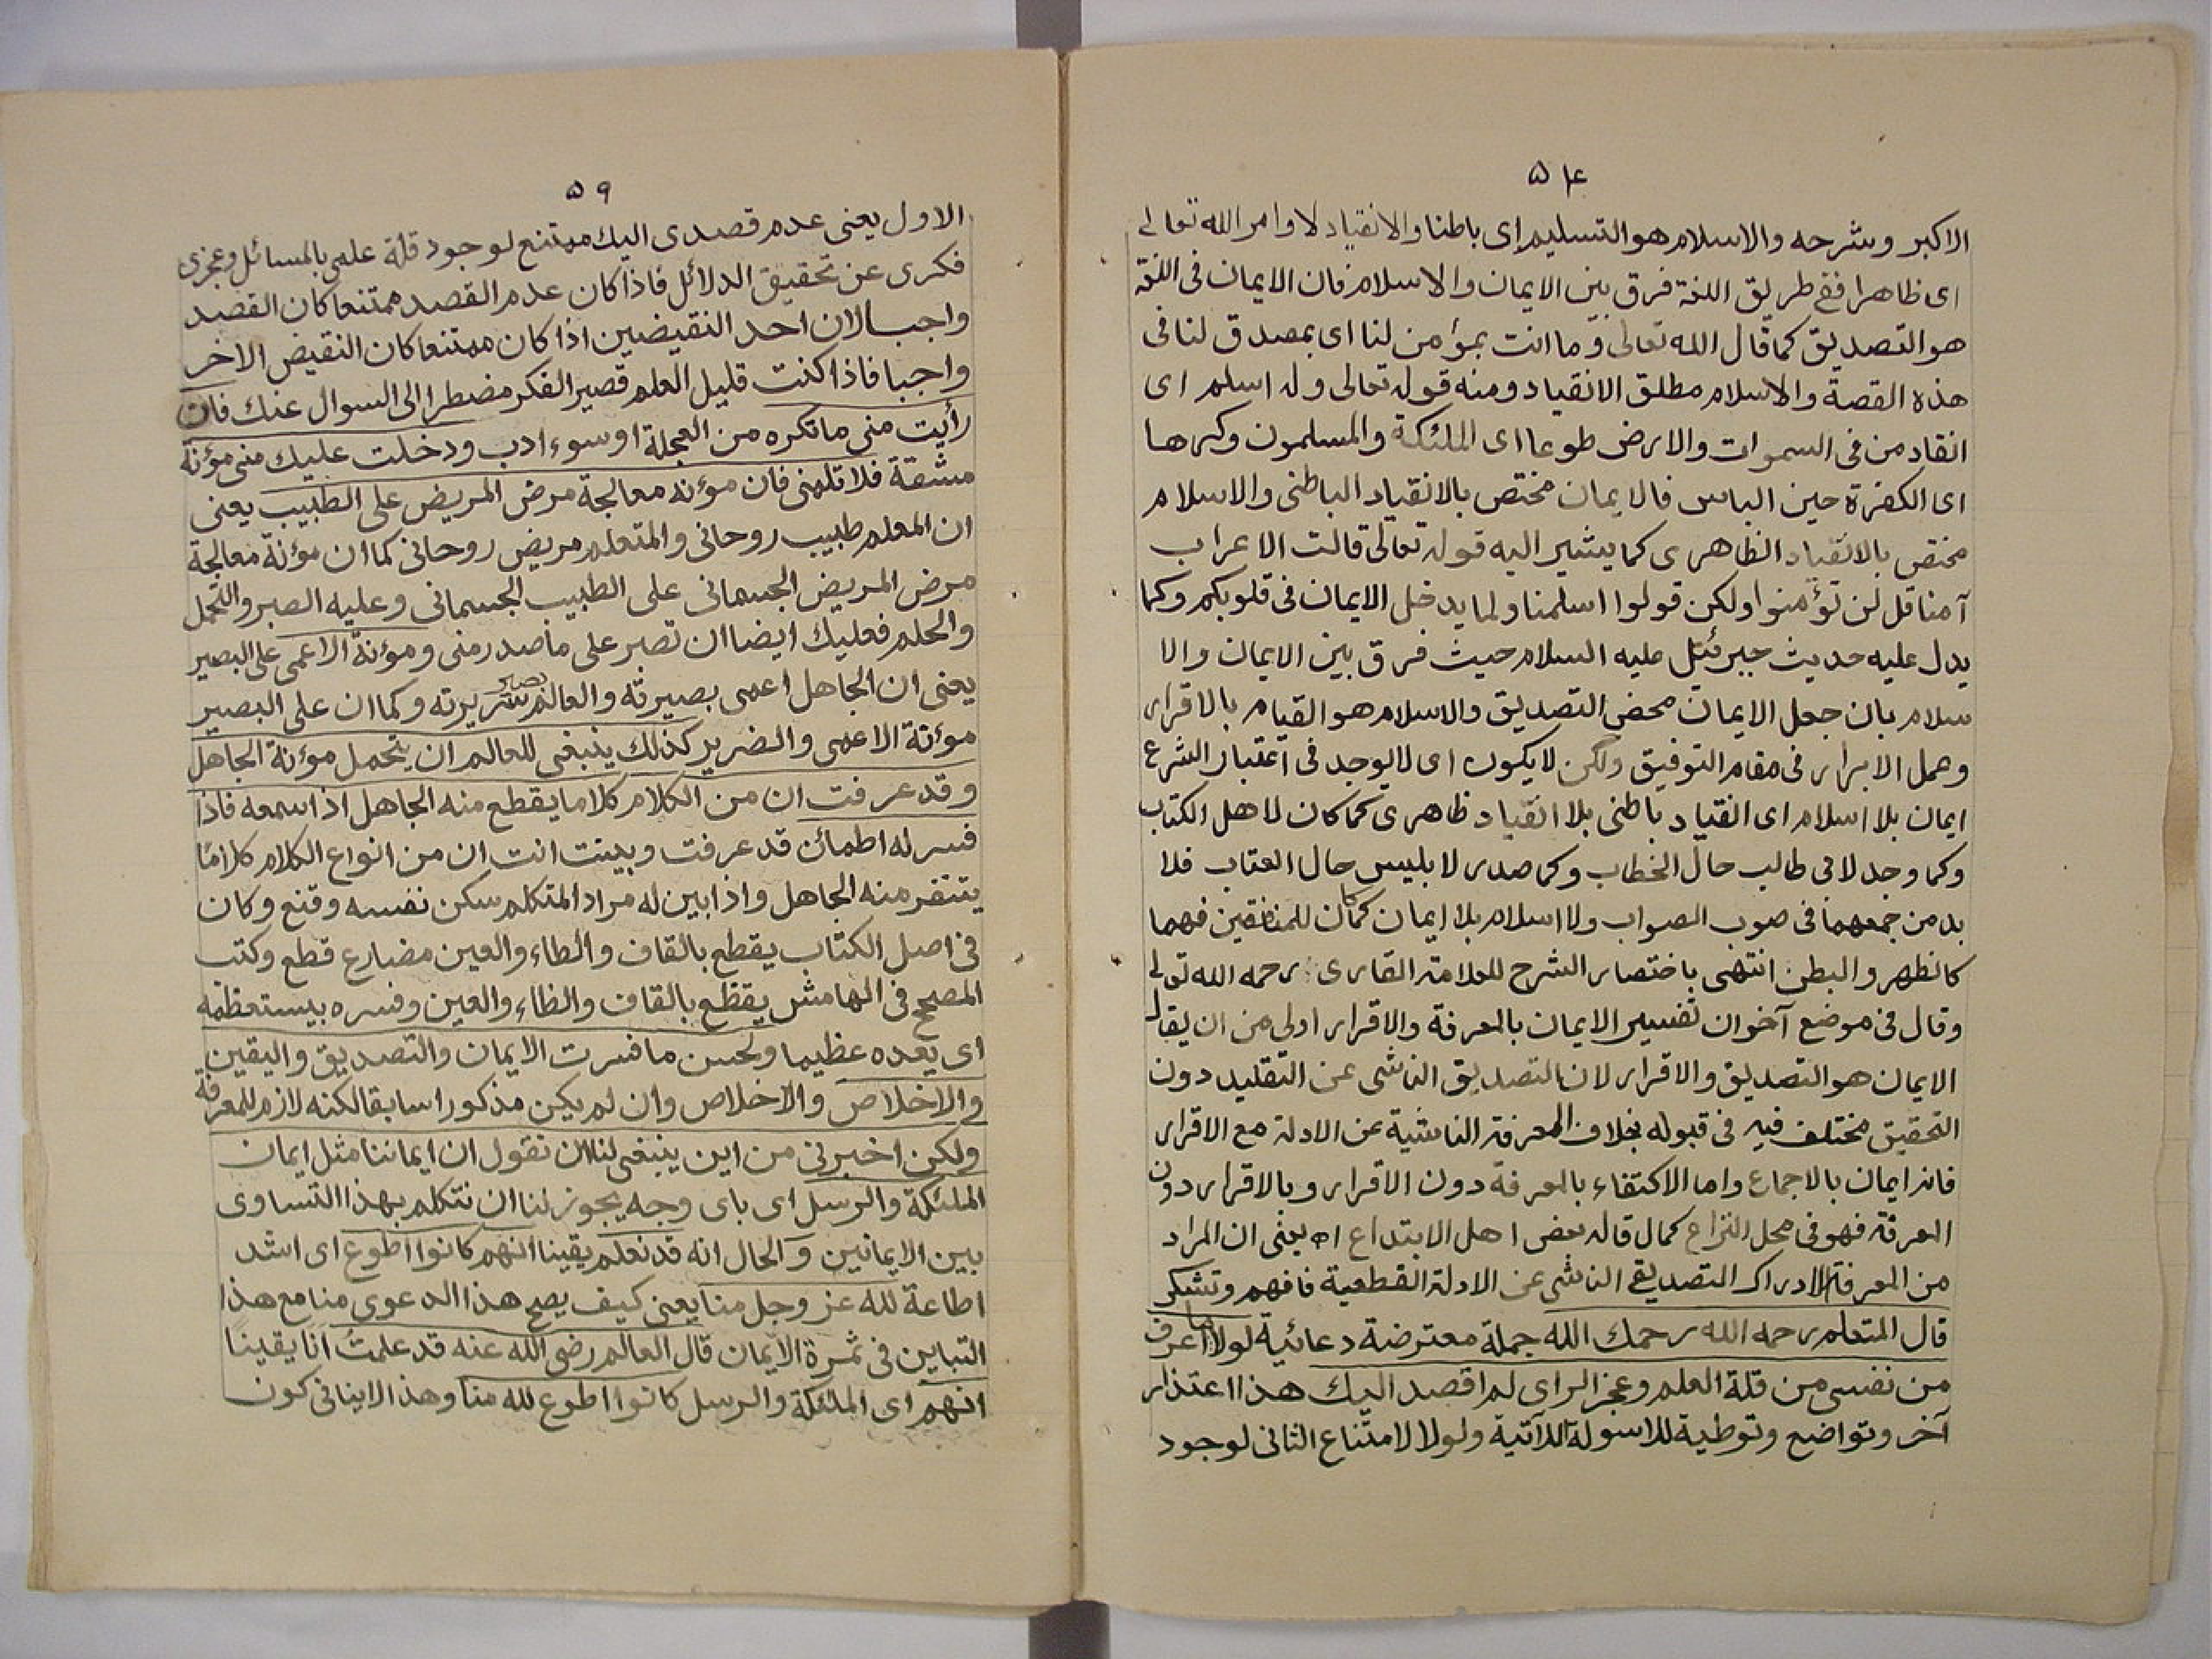 ٥٨
الاكبر وشرحه والاسلام هو التسليم اى باطنا والانقياد لاوامر الله تعالى
اى ظاهرا فغ طريق اللغة فرق بين الايمان والاسلام فان الايمان فى اللغة
هو التصديق كما قال الله تعالى وما انت بمؤمن لنا اى بمصدق لنا فى
هذه القصة والاسلام مطلق الانقياد ومنه قوله تعالى وله اسلم اى
انقاد من فى السموات والارض طوعا اى الملئكة والمسلمون وكرها
اى الكفرة حين الباس فالايمان مختص بالانقياد الباطنى والاسلام
مختص بالانقياد الظاهرى كما يشير اليه قوله تعالى قالت الاعراب
آمنا قل لن تؤمنوا ولكن قولوا اسلمنا ولما يدخل الايمان فى قلوبكم وكما
يدل عليه حديث جبرئيل عليه السلام حيث فرق بين الايمان والا
سلام بان جعل الايمان محض التصديق والاسلام هو القيام بالاقرار
وعمل الابرار فى مقام التوفيق ولكن لا يكون اى لا يوجد فى اعتبار الشرع
ايمان بلا اسلام اى انقياد باطنى بلا انقياد ظاهرى كما كان لاهل الكتاب
وكما وجد لا فى طالب حال الخطاب وكما صدر لابليس حال العتاب فلا
بد من جمعهما فى صوب الصواب ولا اسلام بلا ايمان كما كان للمنافقين فهما
كالظهر والبطن انتهى باختصار الشرح للعلامة القارى رحمه الله تعالى
وقال فى موضع آخر ان تفسير الايمان بالمعرفة والاقرار اولى من ان يقال
الايمان هو التصديق والاقرار لان التصديق الناشى عن التقليد دون
التحقيق مختلف فيه فى قبوله بخلاف المعرفة الناشية عن الادلة مع الاقرار
فانه ايمان بالاجماع واما الاكتفاء بالمعرفة دون الاقرار وبالاقرار دون
المعرفة فهو فى محل النزاع كما قال قاله بعض اهل الابتداع اه يعنى ان المراد
من المعرفة الادراك التصديقى الناشى عن الادلة القطعية فافهم وتشكر
قال المتعلم رحمه الله رحمك الله جملة معترضة دعائية لولا ما اعرف
من نفسى من قلة العلم وعجز الراى لم اقصد اليك هذا اعتذار
آخر وتواضع وتوطية للاسولة الآتية ولولا لامتناع الثانى لوجود
٥٩
الاول يعنى عدم قصدى اليك ممتنع لوجود قلة علمى بالمسائل وعجزى
فكرى عن تحقيق الدلائل فاذا كان عدم القصد ممتنعا كان القصد
واجبا لان احد النقيضين اذا كان ممتنعا كان النقيض الاخر
واجبا فاذا كنت قليل العلم قصير الفكر مضطرا الى السوال عنك فان
رأيت منى ما تكره من العجلة او سوء ادب ودخلت عليك منى مؤنة
مشقة فلا تلمنى فان مؤنة معالجة مرض المريض على الطبيب يعنى
ان المعلم طبيب روحانى والمتعلم مريض روحانى كما ان مؤنة معالجة
مرض المريض الجسمانى على الطبيب الجسمانى وعليه الصبر والتحمل
والحلم فعليك ايضا ان تصبر على ما صدر منى ومؤنة الاعمى على البصير
يعنى ان الجاهل اعمى بصيرته والعالم بصير سريرته وكما ان على البصير
مؤنة الاعمى والضرير كذلك ينبغى للعالم ان يتحمل مؤنة الجاهل
وقد عرفت ان من الكلام كلاما يقطع منه الجاهل اذا سمعه فاذا
فسر له اطمائن قد عرفت وبينت انت ان من انواع الكلام كلاما
يتنفر منه الجاهل واذا بين له مراد المتكلم سكن نفسه وقنع وكان
فى اصل الكتاب يقطع بالقاف والطاء والعين مضارع قطع وكتب
المصحح فى الهامش يقظع بالقاف والظاء والعين وفسره بيستعظمه
اى يعده عظيما ولحسن ما فسرت الايمان والتصديق واليقين
والاخلاص والاخلاص وان لم يكن مذكورا سابقا لكنه لازم للمعرفة
ولكن اخبرنى من اين ينبغى لنا ان نقول ان ايماننا مثل ايمان
الملئكة والرسل اى باى وجه يجوز لنا ان نتكلم بهذا التساوى
بين الايمانين والحال انه قد نعلم يقينا انهم كانوا اطوع اى اشد
اطاعة لله عز وجل منا يعنى كيف يصح هذا الدعوى منا مع هذا
التباين فى ثمرة الايمان قال العالم رضى الله عنه قد علمت انا يقينا
انهم اى الملئكة والرسل كانوا اطوع لله منا وهذا لا ينافى كون